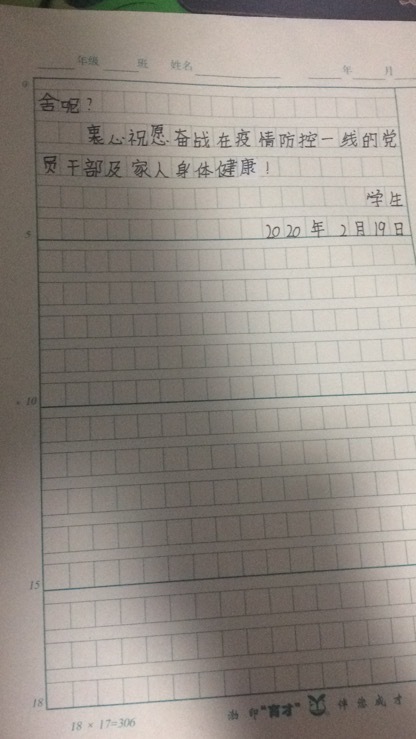 年级 班 姓名 年 月
0
舍呢？
衷心祝愿奋战在疫情防控一线的党
员干部及家人身体健康！
学生
5
2020年2月19日
10
15
18
18 × 17=306
渤 印 "育才" 伴 您 成 才